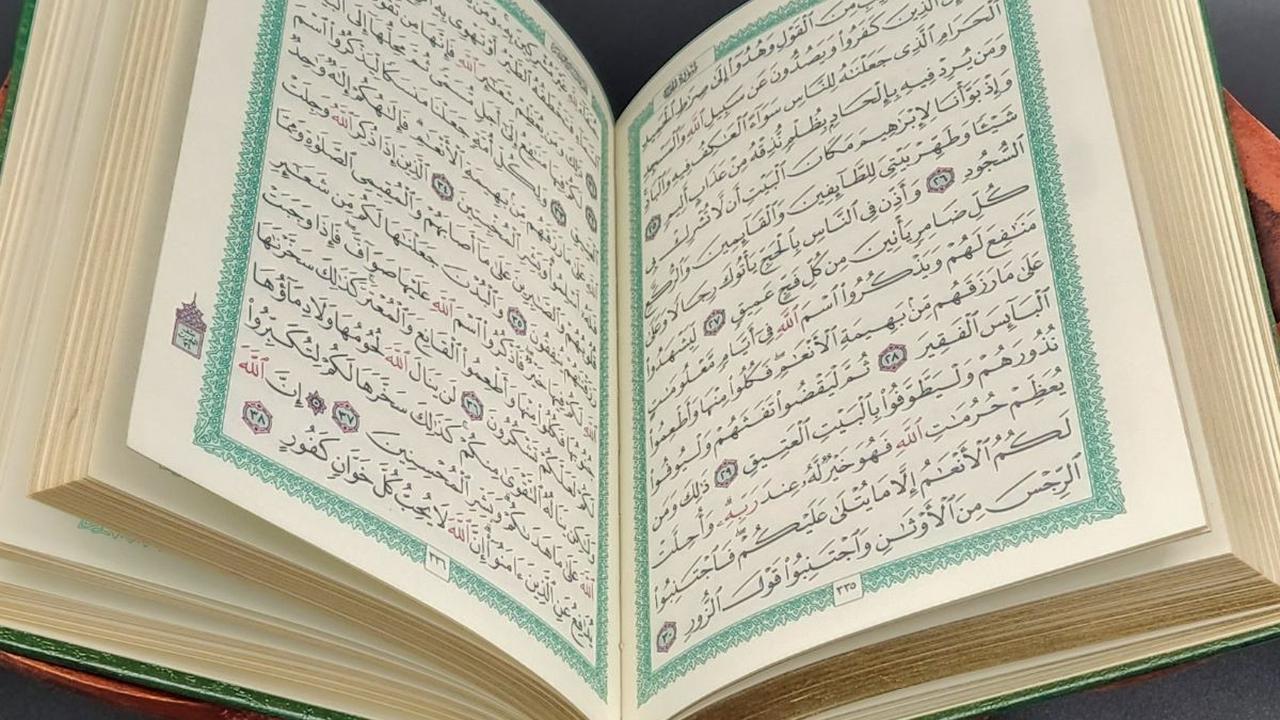 مِنَ ٱلْقَوْلِ وَهُدُوٓا۟ إِلَىٰ صِرَٰطِ ٱلْحَمِيدِ
ٱلَّذِينَ كَفَرُوا۟ وَيَصُدُّونَ عَن سَبِيلِ ٱللَّهِ وَٱلْمَسْجِدِ
ٱلْحَرَامِ ٱلَّذِى جَعَلْنَٰهُ لِلنَّاسِ سَوَآءً ٱلْعَٰكِفُ فِيهِ وَٱلْبَادِ
وَمَن يُرِدْ فِيهِ بِإِلْحَادٍۭ بِظُلْمٍ نُّذِقْهُ مِنْ عَذَابٍ أَلِيمٍ ٢٥
وَإِذْ بَوَّأْنَا لِإِبْرَٰهِيمَ مَكَانَ ٱلْبَيْتِ أَن لَّا تُشْرِكْ بِى
شَيْـًٔا وَطَهِّرْ بَيْتِىَ لِلطَّآئِفِينَ وَٱلْقَآئِمِينَ وَٱلرُّكَّعِ
ٱلسُّجُودِ ٢٦ وَأَذِّن فِى ٱلنَّاسِ بِٱلْحَجِّ يَأْتُوكَ رِجَالًا وَعَلَىٰ
كُلِّ ضَامِرٍ يَأْتِينَ مِن كُلِّ فَجٍّ عَمِيقٍ ٢٧ لِّيَشْهَدُوا۟
مَنَٰفِعَ لَهُمْ وَيَذْكُرُوا۟ ٱسْمَ ٱللَّهِ فِىٓ أَيَّامٍ مَّعْلُومَٰتٍ
عَلَىٰ مَا رَزَقَهُم مِّنۢ بَهِيمَةِ ٱلْأَنْعَٰمِ فَكُلُوا۟ مِنْهَا وَأَطْعِمُوا۟
ٱلْبَآئِسَ ٱلْفَقِيرَ ٢٨ ثُمَّ لْيَقْضُوا۟ تَفَثَهُمْ وَلْيُوفُوا۟
نُذُورَهُمْ وَلْيَطَّوَّفُوا۟ بِٱلْبَيْتِ ٱلْعَتِيقِ ٢٩ ذَٰلِكَ وَمَن
يُعَظِّمْ حُرُمَٰتِ ٱللَّهِ فَهُوَ خَيْرٌ لَّهُۥ عِندَ رَبِّهِۦ وَأُحِلَّتْ
لَكُمُ ٱلْأَنْعَٰمُ إِلَّا مَا يُتْلَىٰ عَلَيْكُمْ فَٱجْتَنِبُوا۟
ٱلرِّجْسَ مِنَ ٱلْأَوْثَٰنِ وَٱجْتَنِبُوا۟ قَوْلَ ٱلزُّورِ ٣٠
٣٣٥
ذَٰلِكَ وَمَن يُعَظِّمْ شَعَٰٓئِرَ ٱللَّهِ فَإِنَّهَا مِن تَقْوَى
لَكُمْ فِيهَا مَنَٰفِعُ إِلَىٰٓ أَجَلٍ مُّسَمًّى ثُمَّ مَحِلُّهَآ إِلَى ٱلْبَيْتِ
ٱلْعَتِيقِ ٣٣ وَلِكُلِّ أُمَّةٍ جَعَلْنَا مَنسَكًا لِّيَذْكُرُوا۟ ٱسْمَ
ٱللَّهِ عَلَىٰ مَا رَزَقَهُم مِّنۢ بَهِيمَةِ ٱلْأَنْعَٰمِ فَإِلَٰهُكُمْ إِلَٰهٌ وَٰحِدٌ
فَلَهُۥٓ أَسْلِمُوا۟ وَبَشِّرِ ٱلْمُخْبِتِينَ ٣٤ ٱلَّذِينَ إِذَا ذُكِرَ ٱللَّهُ وَجِلَتْ
قُلُوبُهُمْ وَٱلصَّٰبِرِينَ عَلَىٰ مَآ أَصَابَهُمْ وَٱلْمُقِيمِى ٱلصَّلَوٰةِ وَمِمَّا
رَزَقْنَٰهُمْ يُنفِقُونَ ٣٥ وَٱلْبُدْنَ جَعَلْنَٰهَا لَكُم مِّن شَعَٰٓئِرِ
ٱللَّهِ لَكُمْ فِيهَا خَيْرٌ فَٱذْكُرُوا۟ ٱسْمَ ٱللَّهِ عَلَيْهَا صَوَآفَّ فَإِذَا وَجَبَتْ
جُنُوبُهَا فَكُلُوا۟ مِنْهَا وَأَطْعِمُوا۟ ٱلْقَانِعَ وَٱلْمُعْتَرَّ كَذَٰلِكَ سَخَّرْنَٰهَا
لَكُمْ لَعَلَّكُمْ تَشْكُرُونَ ٣٦ لَن يَنَالَ ٱللَّهَ لُحُومُهَا وَلَا دِمَآؤُهَا
وَلَٰكِن يَنَالُهُ ٱلتَّقْوَىٰ مِنكُمْ كَذَٰلِكَ سَخَّرَهَا لَكُمْ لِتُكَبِّرُوا۟
ٱللَّهَ عَلَىٰ مَا هَدَىٰكُمْ وَبَشِّرِ ٱلْمُحْسِنِينَ ٣٧ ۞ إِنَّ ٱللَّهَ
يُدَٰفِعُ عَنِ ٱلَّذِينَ ءَامَنُوٓا۟ إِنَّ ٱللَّهَ لَا يُحِبُّ كُلَّ خَوَّانٍ كَفُورٍ ٣٨
٣٣٦